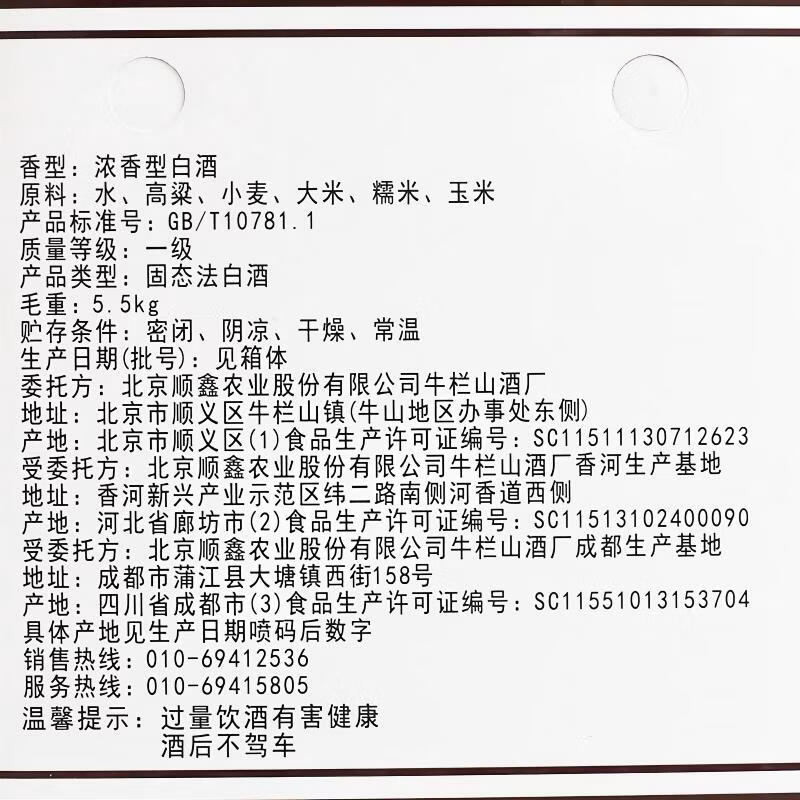 香型：浓香型白酒
原料：水、高粱、小麦、大米、糯米、玉米
产品标准号：GB/T10781.1
质量等级：一级
产品类型：固态法白酒
毛重：5.5kg
贮存条件：密闭、阴凉、干燥、常温
生产日期(批号)：见箱体
委托方：北京顺鑫农业股份有限公司牛栏山酒厂
地址：北京市顺义区牛栏山镇(牛山地区办事处东侧)
产地：北京市顺义区(1)食品生产许可证编号：SC11511130712623
受委托方：北京顺鑫农业股份有限公司牛栏山酒厂香河生产基地
地址：香河新兴产业示范区纬二路南侧河香道西侧
产地：河北省廊坊市(2)食品生产许可证编号：SC11513102400090
受委托方：北京顺鑫农业股份有限公司牛栏山酒厂成都生产基地
地址：成都市蒲江县大塘镇西街158号
产地：四川省成都市(3)食品生产许可证编号：SC11551013153704
具体产地见生产日期喷码后数字
销售热线：010-69412536
服务热线：010-69415805
温馨提示：过量饮酒有害健康
酒后不驾车